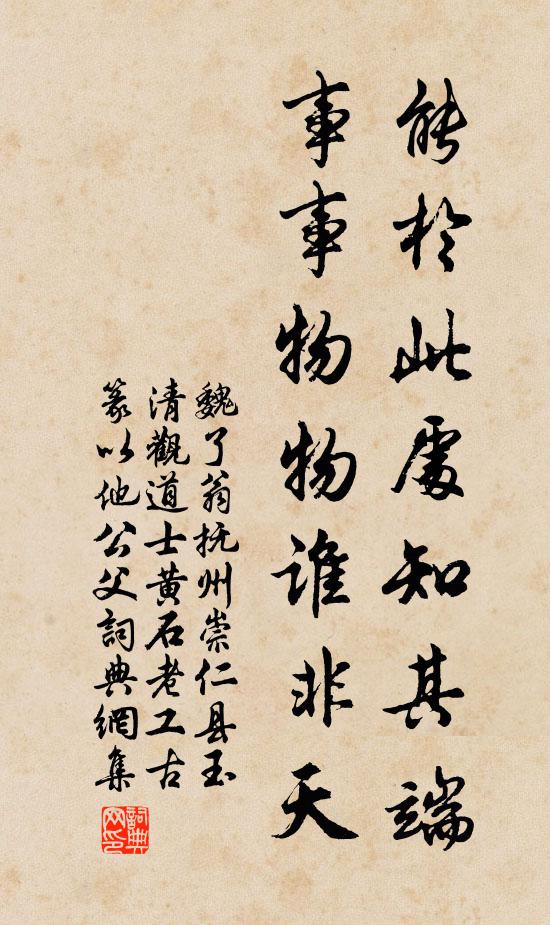 能於此處知其端
事事物物谁非天
魏了翁抚州崇仁县玉
清觀道士黄石老工古
篆以他公父詞典網集
詞典
网印